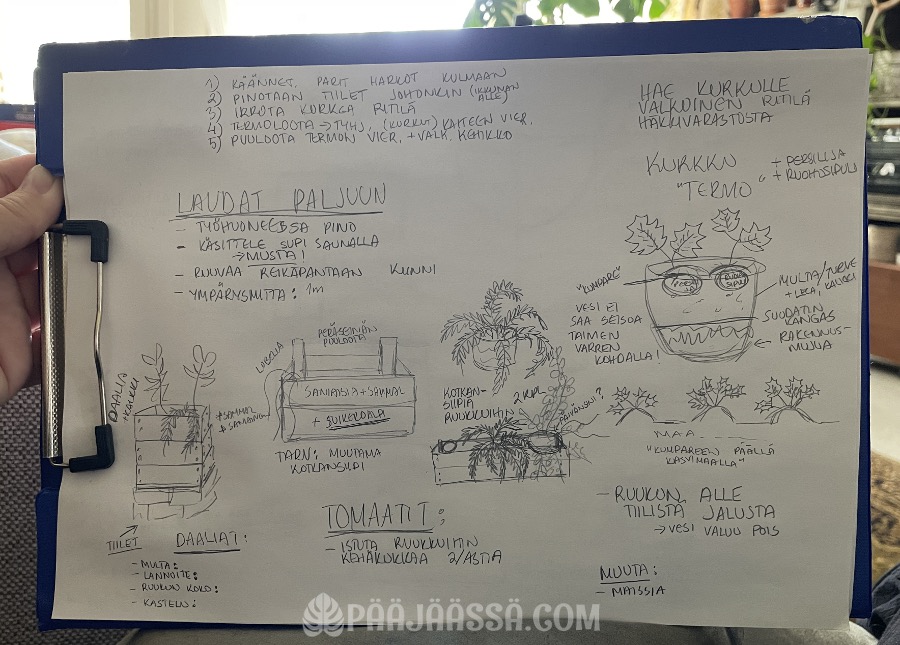 1) KÄÄNNET. PARIT HARKOT KULMAAN
2) PINOTAAN TIILET JOHONKIN (IKKUNAN ALLE)
3) IRROTA KORKEA RITILÄ
4) TERMOLOOTA → TYHJ. (KURKUT) KAITEEN VIER.
5) PUULOOTA TERMON VIER. + VALK. KEHIKKO
HAE KURKULLE
VALKOINEN RITILÄ
HÄKKIVARASTOSTA
KURKKU
"TERMO"
+ PERSILJJA
+ RUOHOSIPULI
LAUDAT PALJUUN
- TYÖHUONEESSA PINO
- KÄSITTELE SUPI SAUNALLA
→ MUSTA!
- RUUVAA REIKÄPANTAAN KUNNI
- YMPÄRYSMITTA: 1m
"KUMPARE"
VESI EI
SAA SEISOA
TAIMEN
VARREN
KOHDALLA!
MULTA/TURVE
+ LECA,
SUODATIN
KANGAS
RAKENNUS-
MUOVIA
DAALIA
LOBELIA
PERÄSEINÄN
PUULOOTA
SAMMAL
TARN: MUUTAMA
KOTKANSIIPI
KOTKAN-
SIIPIÄ
RUUKKUIHIN
2 KPL
PÄIVÄNSINI?
MAA
"KUMPAREEN PÄÄLLÄ
KASVIMAALLA"
TIILET
DAALIAT:
- MULTA:
- LANNOITE:
- RUUKUN KOKO:
- KASTELU:
TOMAATIT:
- ISTUTA RUUKKUIHIN
KEHÄKUKKAA 2/ASTIA
- RUUKUN ALLE
TIILISTÄ JALUSTA
→ VESI VALUU POIS
MUUTA:
- MAISSIA
PÄÄJÄÄSSÄ.COM